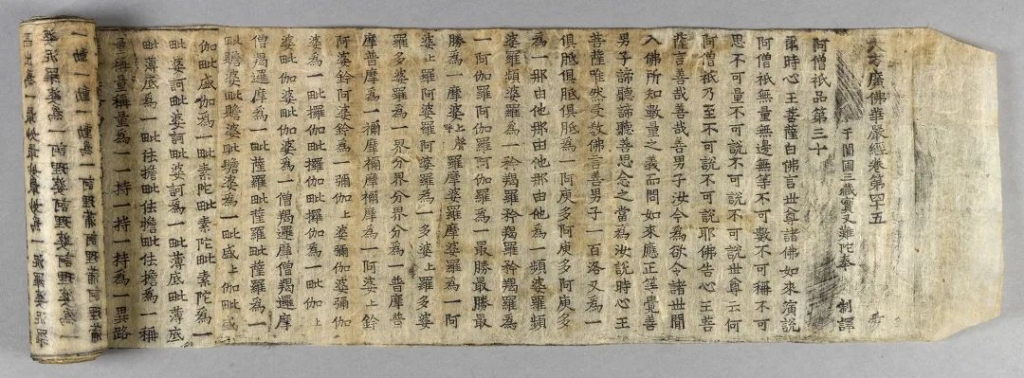 大方廣佛華嚴經卷第四十五
于闐國三藏實叉難陀奉 制譯
阿僧祇品第三十
爾時心王菩薩白佛言世尊諸佛如來演說
阿僧祇無量無邊無等不可數不可稱不可
思不可量不可說不可說不可說世尊云何
阿僧祇乃至不可說不可說耶佛告心王菩
薩言善哉善哉善男子汝今為欲令諸世間
入佛所知數量之義而問如來應正等覺善
男子諦聽諦聽善思念之當為汝說時心王
菩薩唯然受教佛言善男子一百洛叉為一
俱胝俱胝俱胝為一阿庾多阿庾多阿庾多
為一那由他那由他那由他為一頻婆羅頻
婆羅頻婆羅為一矜羯羅矜羯羅矜羯羅為
一阿伽羅阿伽羅阿伽羅為一最勝最勝最
勝為一摩婆上聲羅摩婆羅摩婆羅為一阿
婆上羅阿婆羅阿婆羅為一多婆上羅多婆
羅多婆羅為一界分界分界分為一普摩普
摩普摩為一禰摩禰摩禰摩為一阿婆上鈐
阿婆鈐阿婆鈐為一彌伽上婆彌伽婆彌伽
婆為一毗攞伽毗攞伽毗攞伽為一毗伽上
婆毗伽婆毗伽婆為一僧羯邏摩僧羯邏摩
僧羯邏摩為一毗薩羅毗薩羅毗薩羅為一
毗贍婆毗贍婆毗贍婆為一毗盛上伽毗盛
伽毗盛伽為一毗素陀毗素陀毗素陀為一
毗婆訶毗婆訶毗婆訶為一毗薄底毗薄底
毗薄底為一毗佉擔毗佉擔毗佉擔為一稱
量稱量稱量為一一持一持一持為一異路